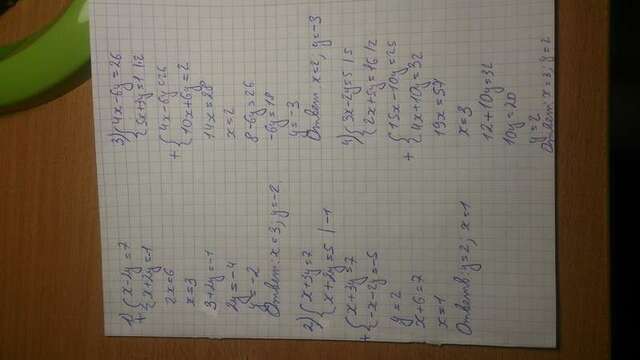 1) { x-2y=7
+ { x+2y=-1
2x=6
x=3
3+2y=-1
2y=-4
y=-2
Ответ: x=3, y=-2.
2) { x+3y=7
{ x+2y=5 | -1
{ x+3y=7
+ { -x-2y=-5
y=2
x+6=7
x=1
Ответ: y=2; x=1
3) { 4x-6y=26
{ 5x+3y=1 | 2
{ 4x-6y=26
+ { 10x+6y=2
14x=28
x=2
8-6y=26
-6y=18
y=-3
Ответ: x=2, y=-3
4) { 3x-2y=5 | 5
{ 2x+5y=16 | 2
{ 15x-10y=25
+ { 4x+10y=32
19x=57
x=3
12+10y=32
10y=20
y=2
Ответ: x=3; y=2